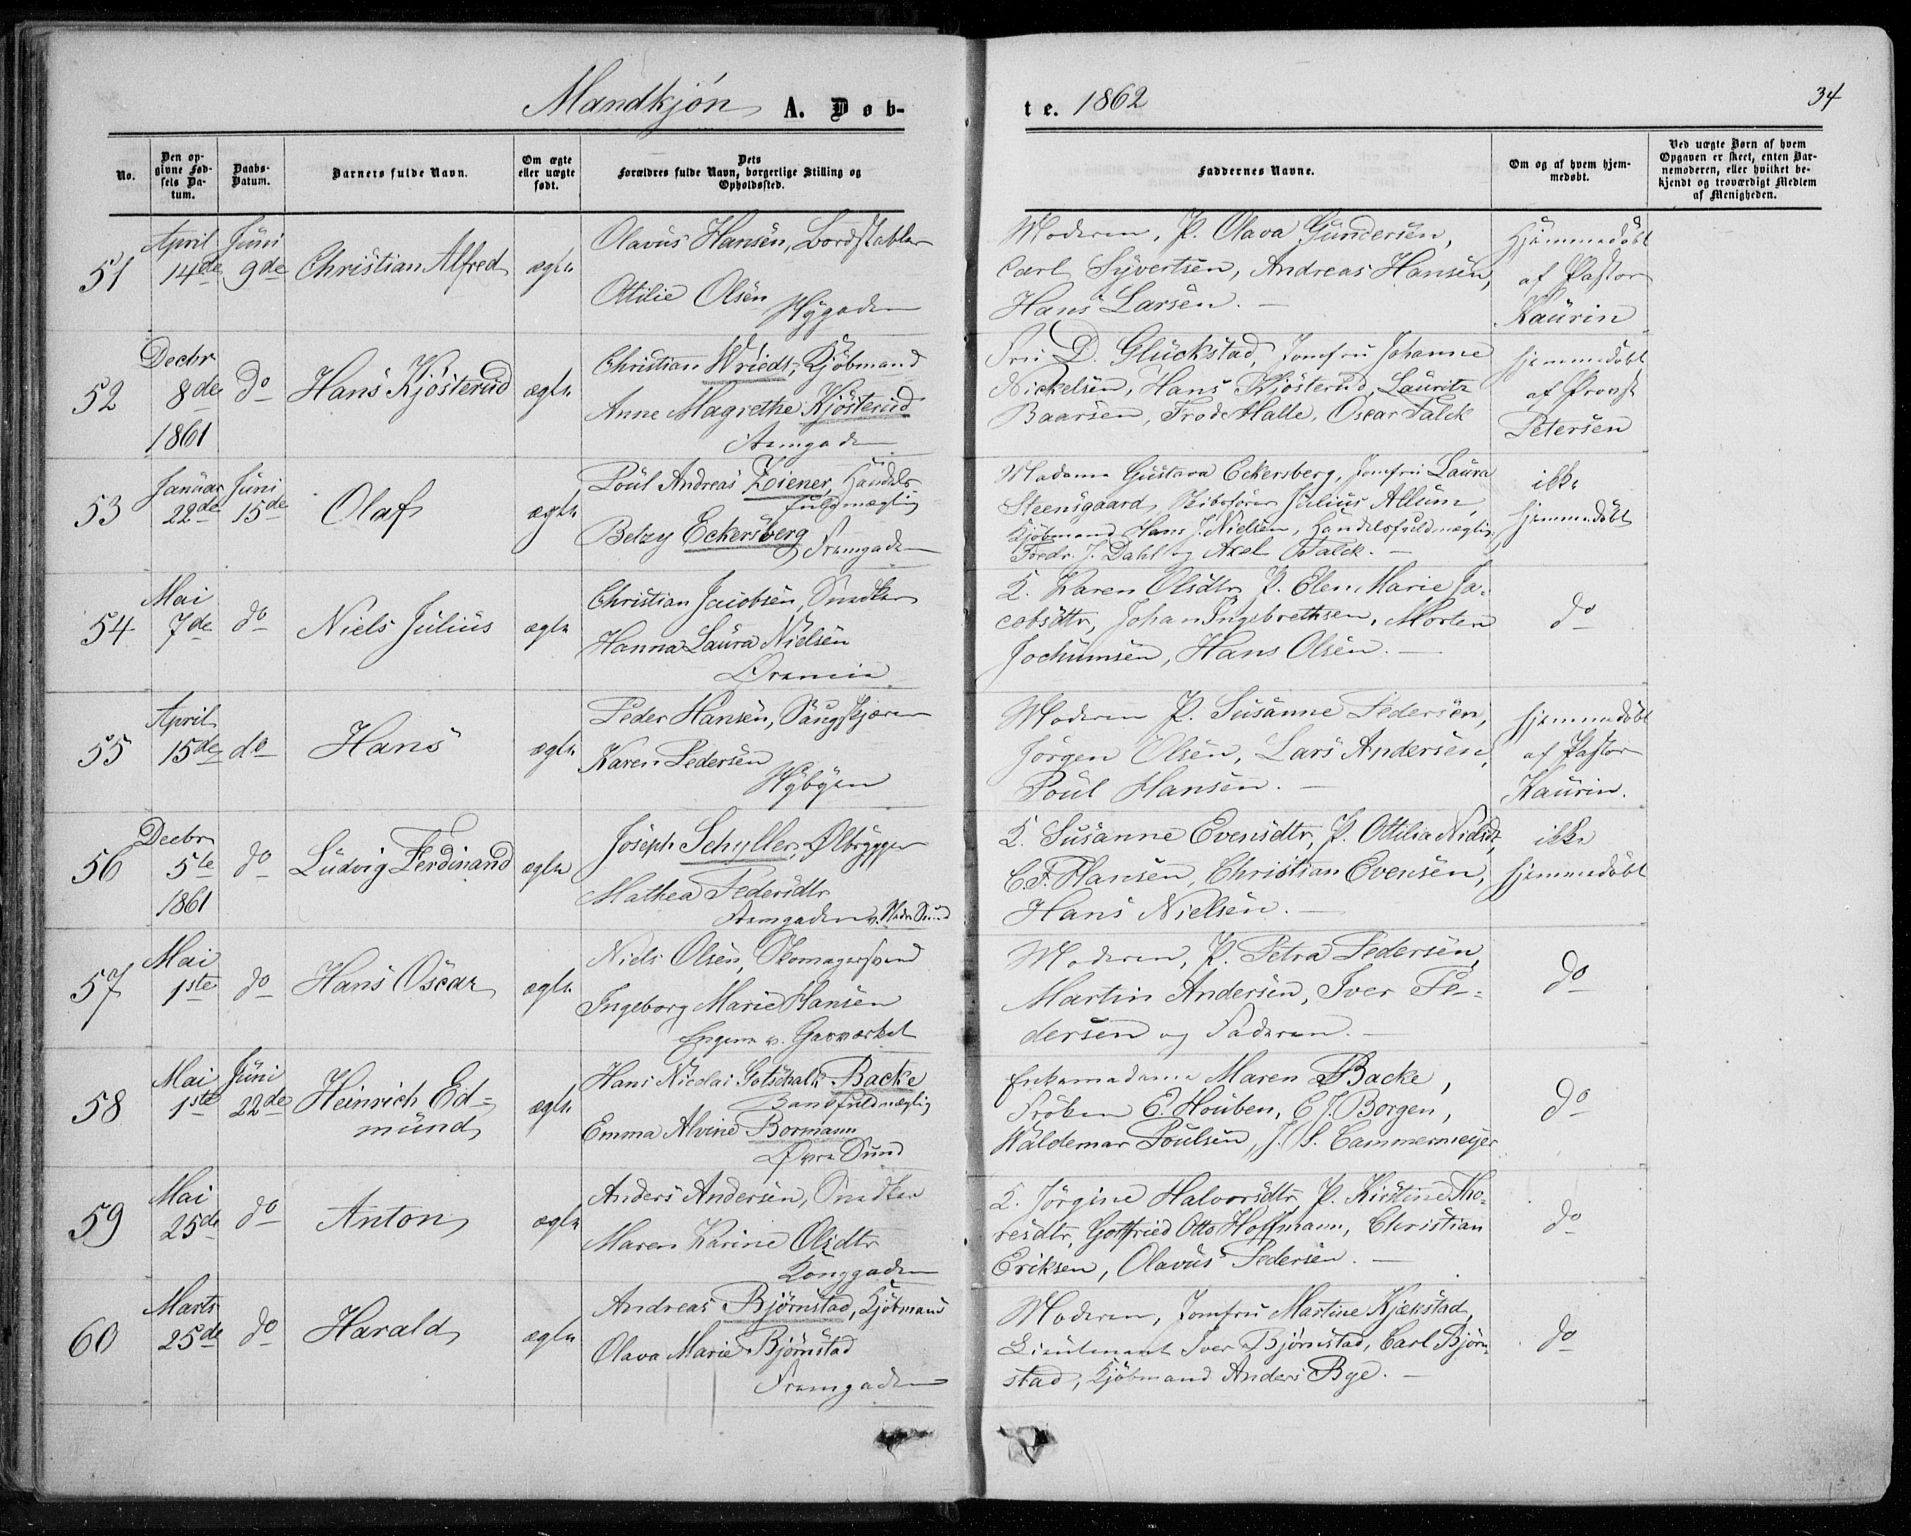 Mandkjøn A. Døb-
te. 1862
34
No.
Den op-
givne Fød-
sels Da-
tum.
Daabs-
Datum.
Barnets fulde Navn.
Om ægte
eller uægte
født.
Dets
Forældres fulde Navn, borgerlige Stilling og
Opholdssted.
Faddernes Navne.
Om og af hvem hjem-
medøbt.
Ved uægte Børn af hvem
Opgaven er skeet, enten Bar-
nemoderen, eller hvilket be-
kjendt og troværdigt Medlem
af Menigheden.
51
April
14de
Juni
9de
Christian Alfred
ægte
Olavus Hansen, Bordstabler
Ottilie Olsen
Nygaden
Moderen, P. Olava Gundersen,
Carl Syvertsen, Andreas Hansen,
Hans Larsen. —
Hjemmedøbt
af Pastor
Kaurin
52
Decbr
8de
1861
do
Hans Kjösterud
ægte
Christian Wriedt, Kjøbmand
Anne Magrethe Kjösterud
Strmgaden
Fru D. Glückstad, Jomfru Johanne
Nickelsen, Hans Kjösterud, Lauritz
Baarsen, Frode Halle, Oscar Falck
hjemmedøbt
af Provst
Petersen
53
Januar
22de
Juni
15de
Olaf
ægte
Poul Andreas Ziener, Handels
fuldmægtig
Betzy Eckersberg
Strmgaden
Madame Gustava Eckersberg, Jomfru Laura
Steensgaard, Skibsfører Julius Allum,
Kjøbmand Hans J. Nielsen, Handelsfuldmægtig
Fredr. J. Dahl og Axel Falck. —
ikke
hjemmedøbt
54
Mai
7de
do
Niels Julius
ægte
Christian Jacobsen, Snedker
Hanna Laura Nielsen
K. Karen Olsdtr, P. Elen Marie Ja-
cobsdtr, Johan Ingebrethsen, Morten
Jochumsen, Hans Olsen. —
do
55
April
15de
do
Hans
ægte
Peder Hansen, Saugskjærer
Karen Pedersen
Nybyen
Moderen P. Susanne Pedersen,
Jörgen Olsen, Lars Andersen,
Poul Hansen. —
hjemmedøbt
af Pastor
Kaurin.
56
Decbr
5te
1861
do
Ludvig Ferdinand
ægte
Joseph Schyller, Ølbrygger
Mathea Pedersdtr
Strmgaden v. Nedre Sund
K. Susanne Evensdtr, P. Ottilia Nielsdtr,
C. F. Hansen, Christian Evensen,
Hans Nielsen. —
ikke
hjemmedøbt
57
Mai
1ste
do
Hans Oscar
ægte
Niels Olsen, Skomagersvend
Ingeborg Marie Hansen
Engene v. Gasværket
Moderen, P. Petra Pedersen,
Martin Andersen, Iver Pe-
dersen og Faderen. —
do
58
Mai
1ste
Juni
22de
Heinrich Ed-
mund
ægte
Hans Nicolai Gotschalk Backe
Bankfuldmægtig
Emma Alvine Bormann
Øvre Sund
Enkemadame Maren Backe,
Frøken E. Houben, C. J. Borgen,
Waldemar Poulsen, J. S. Cammermeyer
do
59
Mai
25de
do
Anton
ægte
Anders Andersen, Snedker
Maren Karine Olsdtr
Konggaden
K. Jörgine Halvorsdtr, P. Kirstine Tho-
resdtr, Gotfried Otto Hoffmann, Christian
Eriksen, Olavus Pedersen. —
do
60
Marts
25de
do
Harald
ægte
Andreas Bjørnstad, Kjøbmand
Olava Marie Bjørnstad
Strmgaden
Moderen, Jomfru Martine Kjækstad,
Lieutenant Iver Bjørnstad, Carl Bjørn-
stad, Kjøbmand Anders Bye. —
do